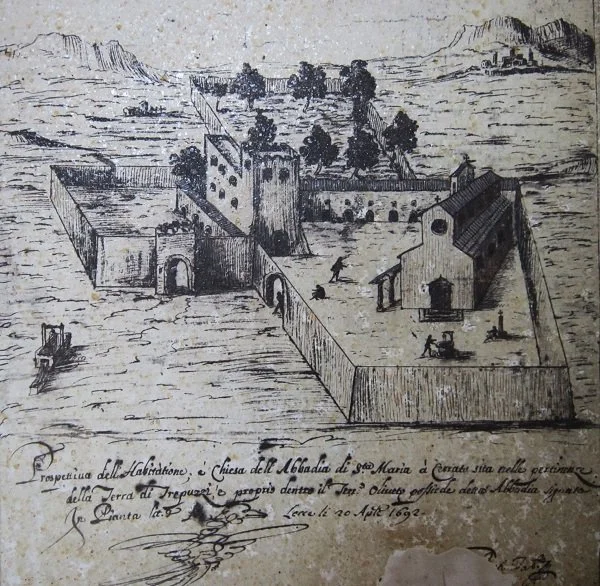 Prospettiva dell'Habitatione, e Chiesa dell'Abbadia di S.ta Maria à Cerrate sita nelle pertinenze
della Terra di Trepuzzi e proprio dentro il Terr.o Oliveto possiede detta Abbadia
In Pianta Lecce li 20 Aple 1692.